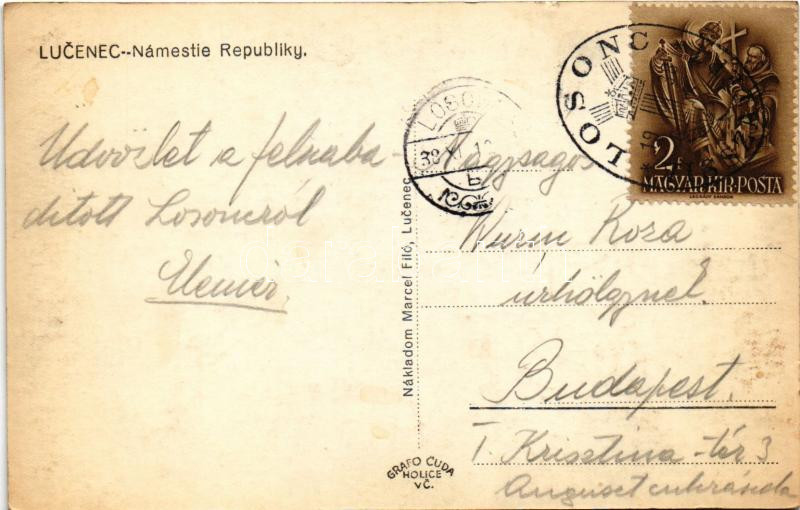 LUČENEC--Námestie Republiky.
Üdvözlet a felszaba-
dított Losoncról
Elemér.
Nákladom Marcel Filó, Lučenec
GRAFO ČUDA
HOLICE
VČ.
LOSONC
38
LOSONC
2 f
MAGYAR·KIR·POSTA
LEGRÁDY SÁNDOR
Nagyságos
Wurm Róza
úrhölgynek
Budapest.
I. Krisztina-tér 3
Auguszt cukrászda